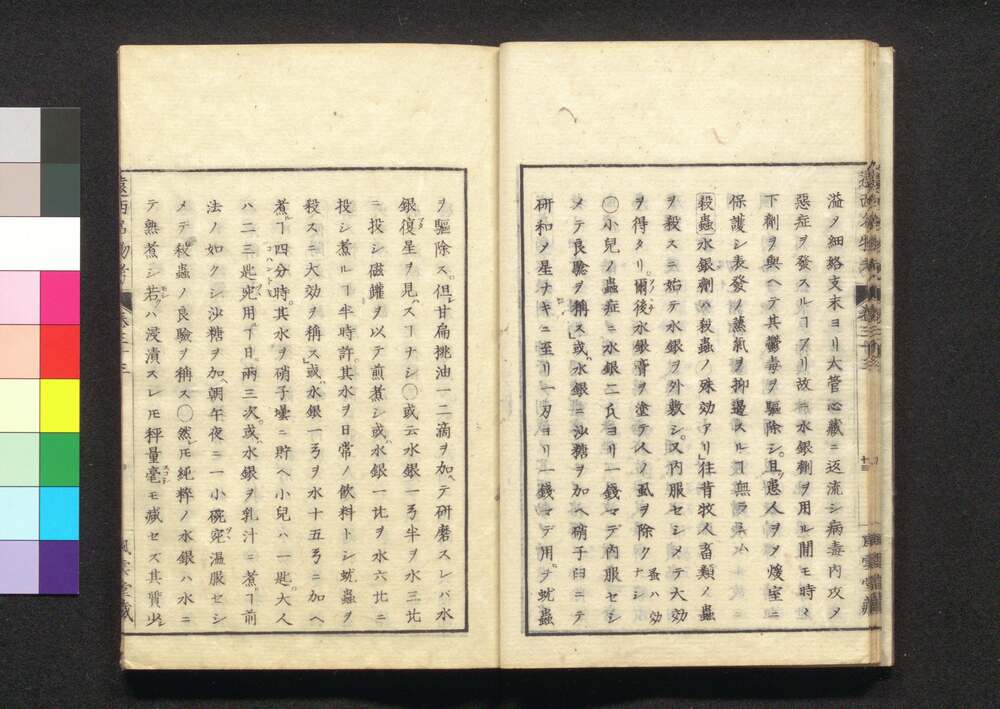 溢ノ細絡支末ヨリ大管心臓ニ返流シ病毒内攻〆
惡症ヲ發スルヿアリ故ニ水銀劑ヲ用ル間モ時々
下劑ヲ與ヘテ其鬱毒ヲ驅除シ。且患人ヲ〆煖室ニ
保護シ表發ノ蒸氣ヲ抑遏スルヿ無ラシム
殺蟲水銀劑ハ殺蟲ノ殊効アリ」往昔牧人畜類ノ蟲
ヲ殺スニ始テ水銀ヲ外敷シ。又内服セシメテ大効
ヲ得タリ。爾後水銀膏ヲ塗テ人ノ虱ヲ除ク 蚤ハ効ナシ
○小兒ノ蟲症ニ水銀二氏ヨリ一錢マデ内服セシ
メテ良驗ヲ稱ス」或ハ水銀ニ沙糖ヲ加ヘ硝子臼ニテ
研和〆星ナキニ至リ一刃ヨリ一錢マデ用テ蚘蟲
ヲ驅除ス。但甘扁桃油一二滴ヲ加ヘテ研磨スレバ水
銀復星ヲ見ハスヿナシ○或云水銀一弓半ヲ水三比
ニ投シ磁罐ヲ以テ煎煮シ或ハ水銀一比ヲ水六比ニ
投シ煮ルヿ半時許。其水ヲ日常ノ飲料トシ蚘蟲ヲ
殺スニ大効ヲ稱ス」或ハ水銀一弓ヲ水十五弓ニ加ヘ
煮ヿ四分時。其水ヲ硝子壜ニ貯ヘ小兒ハ一匙。大人
ハ二三匙宛用ヿ日ニ兩三次。或ハ水銀ヲ乳汁ニ煮ヿ前
法ノ如クシ沙糖ヲ加ヘ朝午夜ニ一小碗宛温服セシ
メテ殺蟲ノ良驗ヲ稱ス○然レモ純粹ノ水銀ハ水ニ
テ熟煮シ若クハ浸漬スレモ秤量毫モ減セズ其質少シ